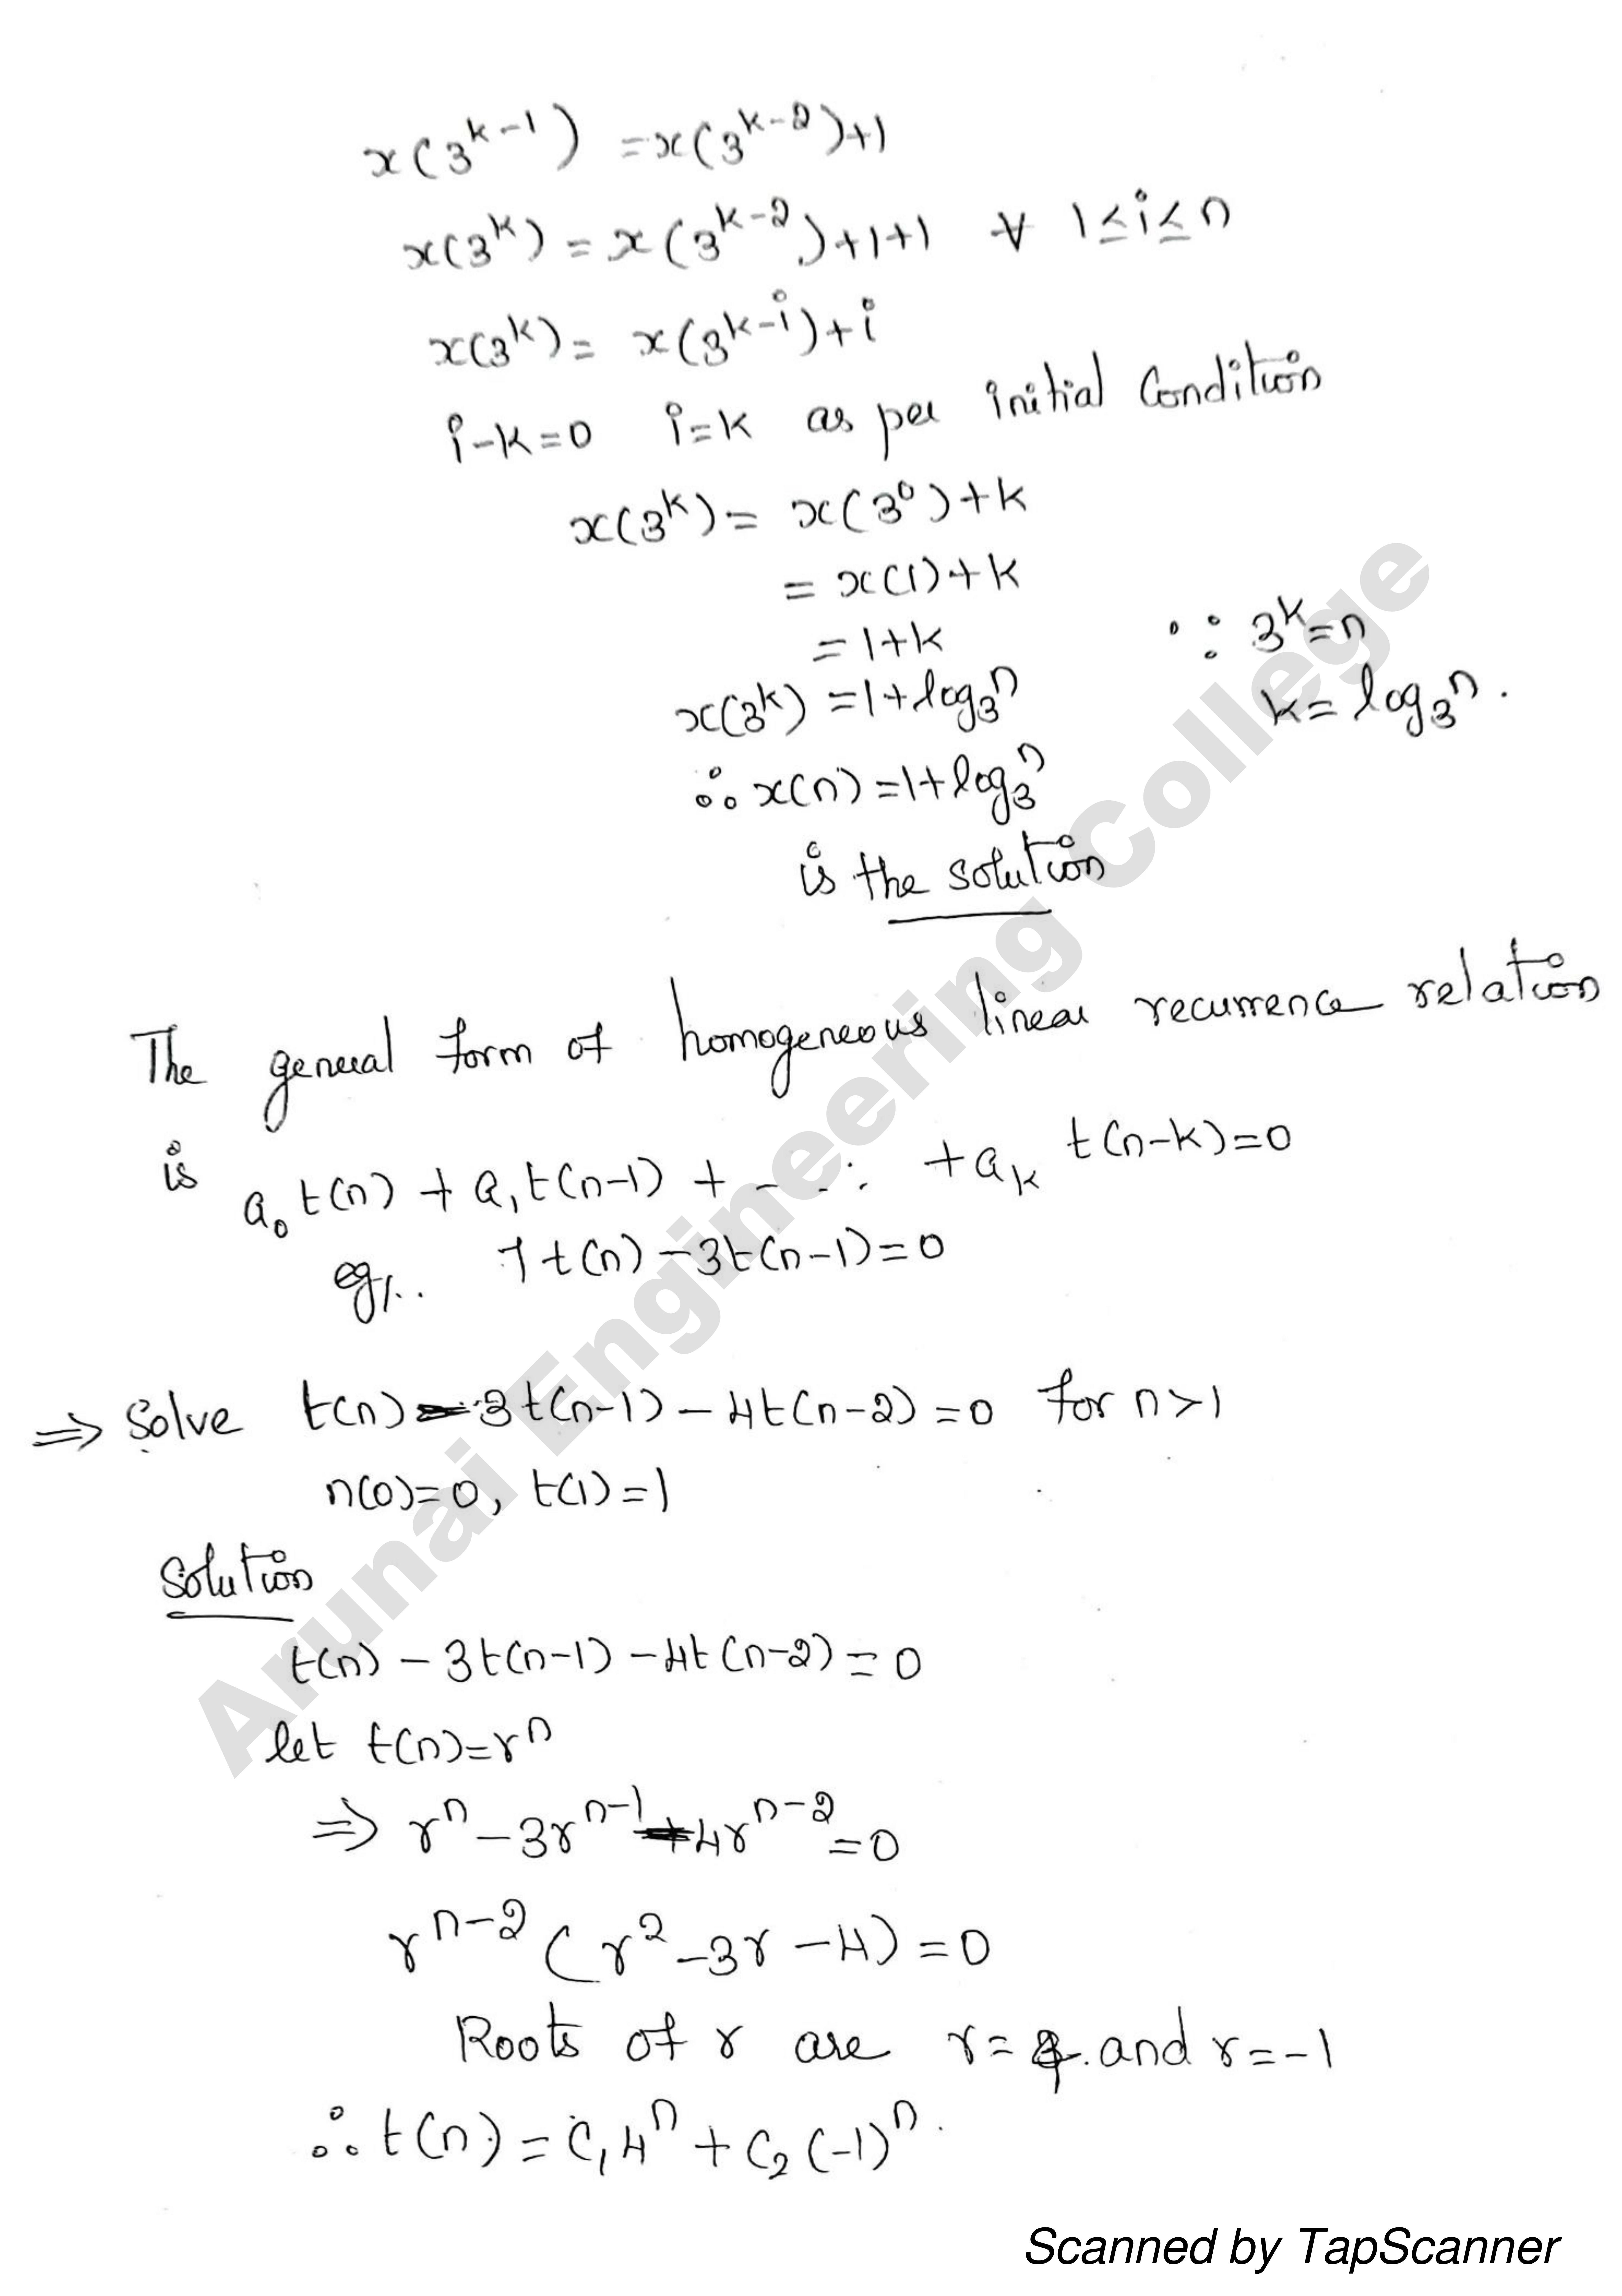 x(3^{k-1}) = x(3^{k-2})+1
x(3^k) = x(3^{k-2})+1+1 ∀ 1≤i≤n
x(3^k) = x(3^{k-i})+i
i-k=0 i=k as per initial Condition
x(3^k) = x(3^0)+k
= x(1)+k
= 1+k ∵ 3^k=n
x(3^k) = 1+log_3 n k= log_3 n.
∴ x(n) = 1+log_3 n
is the solution
The general form of homogeneous linear recurrence relation
is a_0 t(n) + a_1 t(n-1) + - - - + a_k t(n-k)=0
eg/.. 7t(n) -3t(n-1)=0
⇒ Solve t(n) - 3t(n-1) - 4t(n-2) = 0 for n>1
n(0)=0, t(1)=1
Solution
t(n) - 3t(n-1) - 4t(n-2) = 0
let t(n)=r^n
⇒ r^n - 3r^{n-1} - 4r^{n-2} = 0
r^{n-2} (r^2 - 3r - 4) = 0
Roots of r are r= 4 and r=-1
∴ t(n) = C_1 4^n + C_2 (-1)^n.
Arunai Engineering College
Scanned by TapScanner